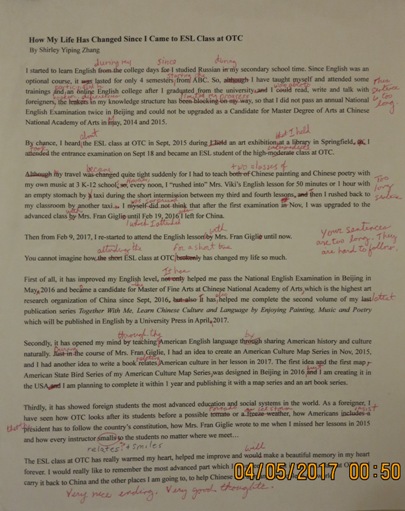 How My Life Has Changed Since I Came to ESL Class at OTC
By Shirley Yiping Zhang
during my since during
I started to learn English from the college days for I studied Russian in my secondary school time. Since English was an
optional course, it was lasted for only 4 semesters from ABC. So, although I have taught myself and attended some
trainings and an online English college after I graduated from the university and I could read, write and talk with
foreigners, the in my knowledge structure has been blocking on my way, so that I did not pass an annual National
English Examination twice in Beijing and could not be upgraded as a Candidate for Master Degree of Arts at Chinese
National Academy of Arts in May, 2014 and 2015.
about
By chance, I heard the ESL class at OTC in Sept, 2015 during I held an exhibition at a library in Springfield, so, I
attended the entrance examination on Sept 18 and became an ESL student of the high-moderate class at OTC.
became two classes of
Although my travel was changed quite tight suddenly for I had to teach both of Chinese painting and Chinese poetry with
my own music at 3 K-12 school, so, every noon, I "rushed into" Mrs. Vik's English lesson for 50 minutes or 1 hour with
an empty stomach by a taxi during the short intermission between my third and fourth lessons, and then I rushed back to
my classroom by another taxi. I myself did not think that after the first examination in Nov, I was upgraded to the
advanced class by Mrs. Fran Giglio until Feb 19, 2016 I left for China.
Too long sentence
with
Then from Feb 9, 2017, I re-started to attend the English lesson by Mrs. Fran Giglio until now.
Your sentences are too long. They are hard to follow.
attending the for a short time
You cannot imagine how the short ESL class at OTC has changed my life so much.
It has
First of all, it has improved my English level, not only helped me pass the National English Examination in Beijing in
May, 2016 and became a candidate for Master of Fine Arts at Chinese National Academy of Arts which is the highest art
research organization of China since Sept, 2016, but also it has helped me complete the second volume of my last
latest
publication series Together With Me, Learn Chinese Culture and Language by Enjoying Painting, Music and Poetry
which will be published in English by a University Press in April, 2017.
through the by
Secondly, it has opened my mind by teaching American English language through sharing American history and culture
naturally. Just in the course of Mrs. Fran Giglio, I had an idea to create an American Culture Map Series in Nov, 2015,
and I had another idea to write a book relates American culture in her lesson in 2017. The first idea and the first map -
American State Bird Series of my American Culture Map Series was designed in Beijing in 2016 and I am creating it in
the USA and I am planning to complete it within 1 year and publishing it with a map series and an art book series.
Thirdly, it has showed foreign students the most advanced education and social systems in the world. As a foreigner, I
have seen how OTC looks after its students before a possible or freeze weather, how Americans includes a
president has to follow the country's constitution, how Mrs. Fran Giglio wrote to me when I missed her lessons in 2015
and how every instructor smails to the students no matter where we meet...
smiles
will
The ESL class at OTC has really warmed my heart, helped me improve and would make a beautiful memory in my heart
forever. I would really like to remember the most advanced part which I
carry it back to China and the other places I am going to, to help Chinese
Very nice ending. Very good thoughts.
04/05/2017 00:50